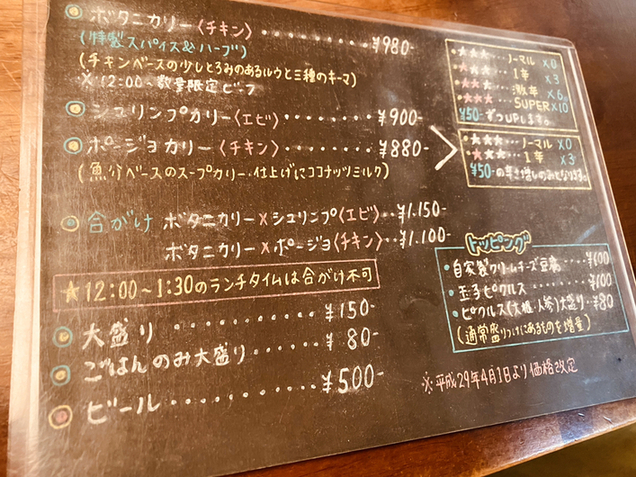 ボタニカリー〈チキン〉 ・・・・・・・・・ ¥980-
(特製スパイス&ハーブ)
(チキンベースの少しとろみのあるルウと三種のキーマ)
※12:00〜数量限定
シュリンプカリー〈エビ〉・・・・・・・¥900-
ポージョカリー〈チキン〉・・・・・・・¥880-
(魚介ベースのスープカリー・仕上げにココナッツミルク)
★★★・・・ノーマル ×0
★★★・・・1辛 ×3
★★★・・・激辛 ×6
★★★・・・SUPER×10
¥50-ずつUPします。
★★★・・・ノーマル ×0
★★★・・・1辛 ×3
¥50-の辛さ増しのみとなります。
合がけ ボタニカリー×シュリンプ〈エビ〉・・¥1.150-
ボタニカリー×ポージョ〈チキン〉・・・¥1.100-
★12:00〜1:30のランチタイムは合がけ不可
大盛り・・・・・・・・・・¥150-
ごはんのみ大盛り・・・・・・¥80-
ビール・・・・・・・・・¥500-
トッピング
・自家製クリームチーズ豆腐・・・・¥100
・玉子ピクルス・・・・・・・¥100
・ピクルス(大根・人参)大盛り・・¥80
(通常盛りつけにあるものを増量)
※平成29年4月1日より価格改定